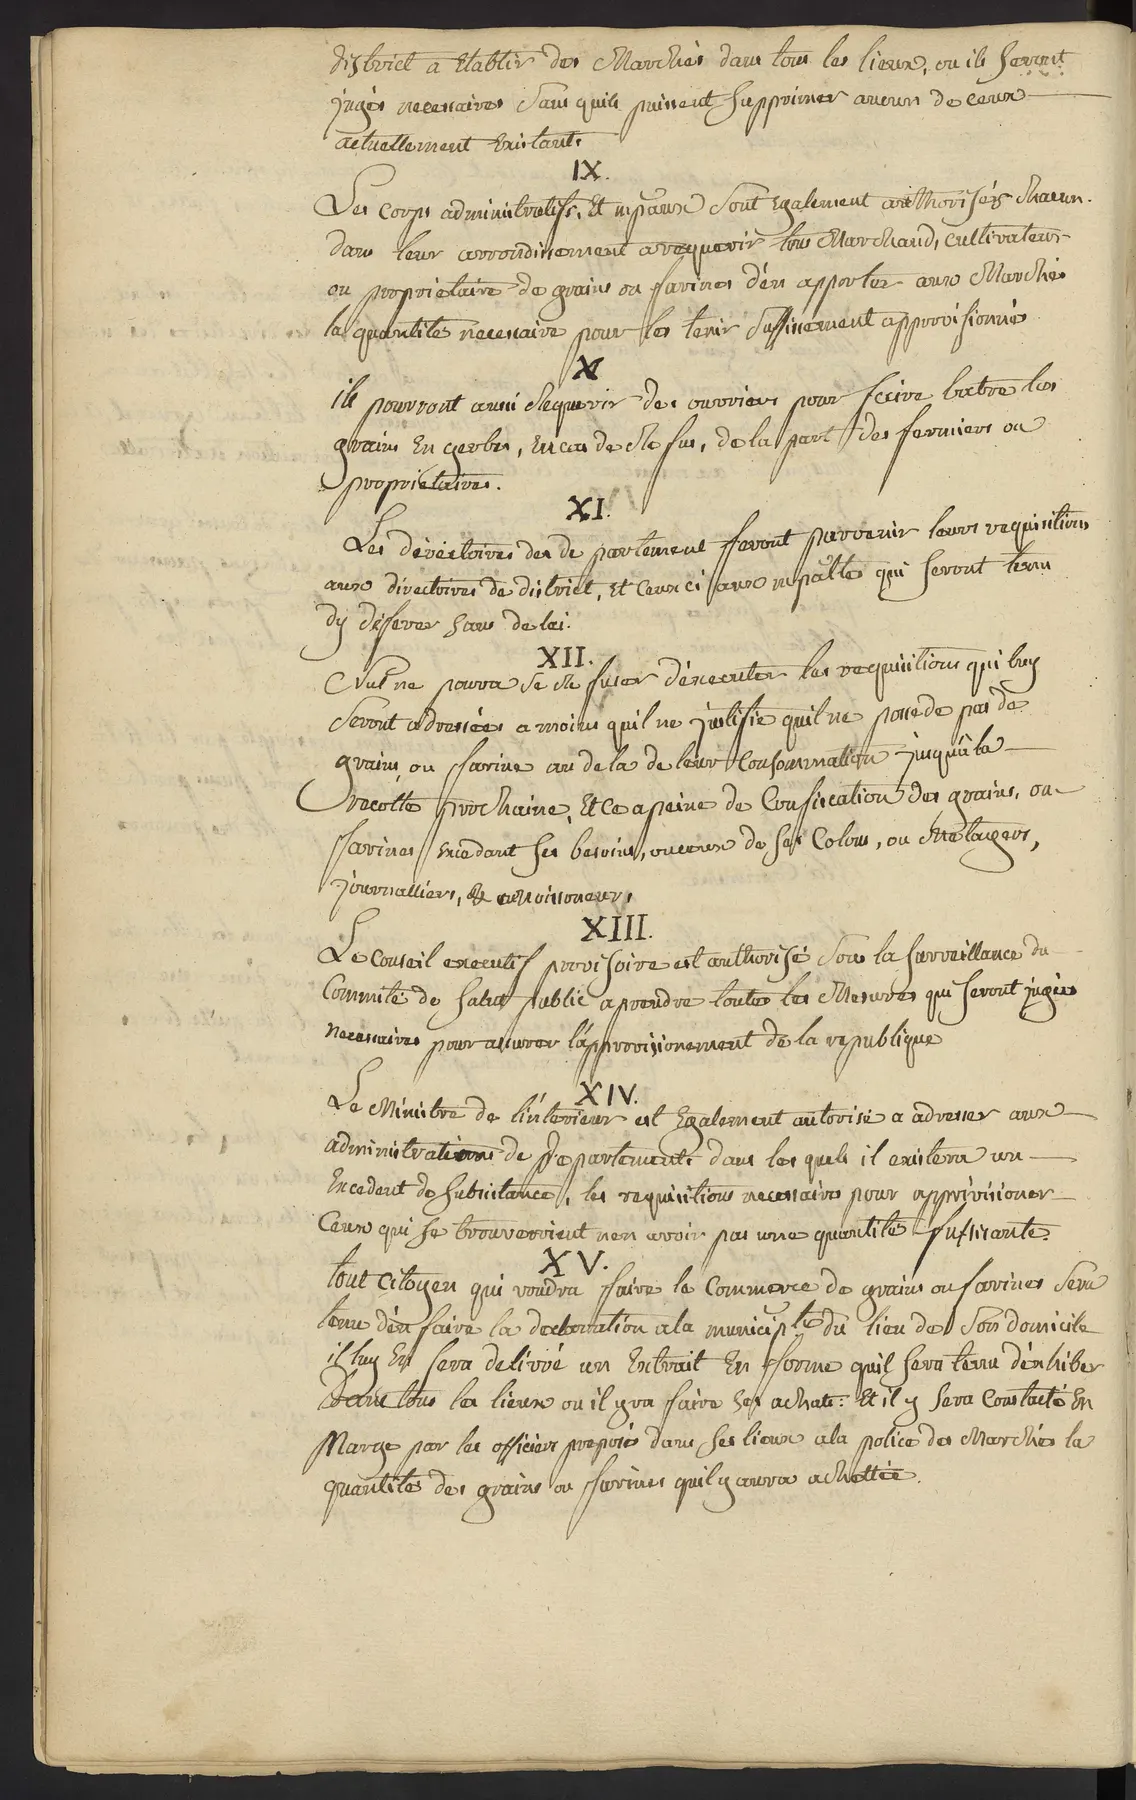 district a Etablir des Marchés dans tous les lieux, ou ils seront
jugés necessaires sans quils puissent supprimer aucun de ceux
actuellement Existants
IX.
Les corps administratifs, Et mpaux sont Egalement authorisés chacun
dans leur arrondissement a requerir tous Marchand, cultivateurs
ou proprietaire de grains ou farines d'en apporter aux Marchés
la quantité necessaire pour les tenir suffisement approvisionnés
X
ils pourront aussi Requerir des ouvriers pour faire batre les
grains En gerbes, En cas de Refus, de la part des fermiers ou
proprietaires.
XI.
Les directoires des de partement feront parvenir leurs requisitions
aux directoires de district, Et Ceux ci aux mpaltés qui seront tenu
dy deferer sans delai.
XII.
Nul ne pourra se Refuser d'executer les requisitions qui luy
seront adressées a moins quil ne justifie quil ne possede pas de
grains, ou farine au dela de leur Consommation jusqu'à la
recolte prochaine, Et ce a peine de Confiscation des grains, ou
farines Excedant ses besoins, ou ceux de ses Colons, ou Metayers,
journalliers, & Moissoneurs,
XIII.
Le Conseil executif provisoire est authorisé sous la surveillance du
Commité de salut public a prendre toutes les Mesures qui seront jugées
necessaires pour assurer l'approvisionement de la republique
XIV.
Le Ministre de l'interieur est Egalement autorisé a adresser aux
administrations de Departements dans les quels il existera un
Excedent de subsistance, les requisitions necessaires pour approvisioner
Ceux qui se trouveroient nen avoir pas une quantité suffisante.
XV.
tout Citoyen qui voudra faire le Commerce de grains ou farines sera
tenu d'en faire la declaration a la municiplté du lieu de son domicile
il luy En sera delivré un Extrait En forme quil sera tenu d'exhiber
dans tous les lieux ou il yra faire ses achats: Et il y sera Constaté En
Marge par les officiers preposés dans ses lieux a la police des Marchés la
quantité des grains ou farines quil y aura achettée.